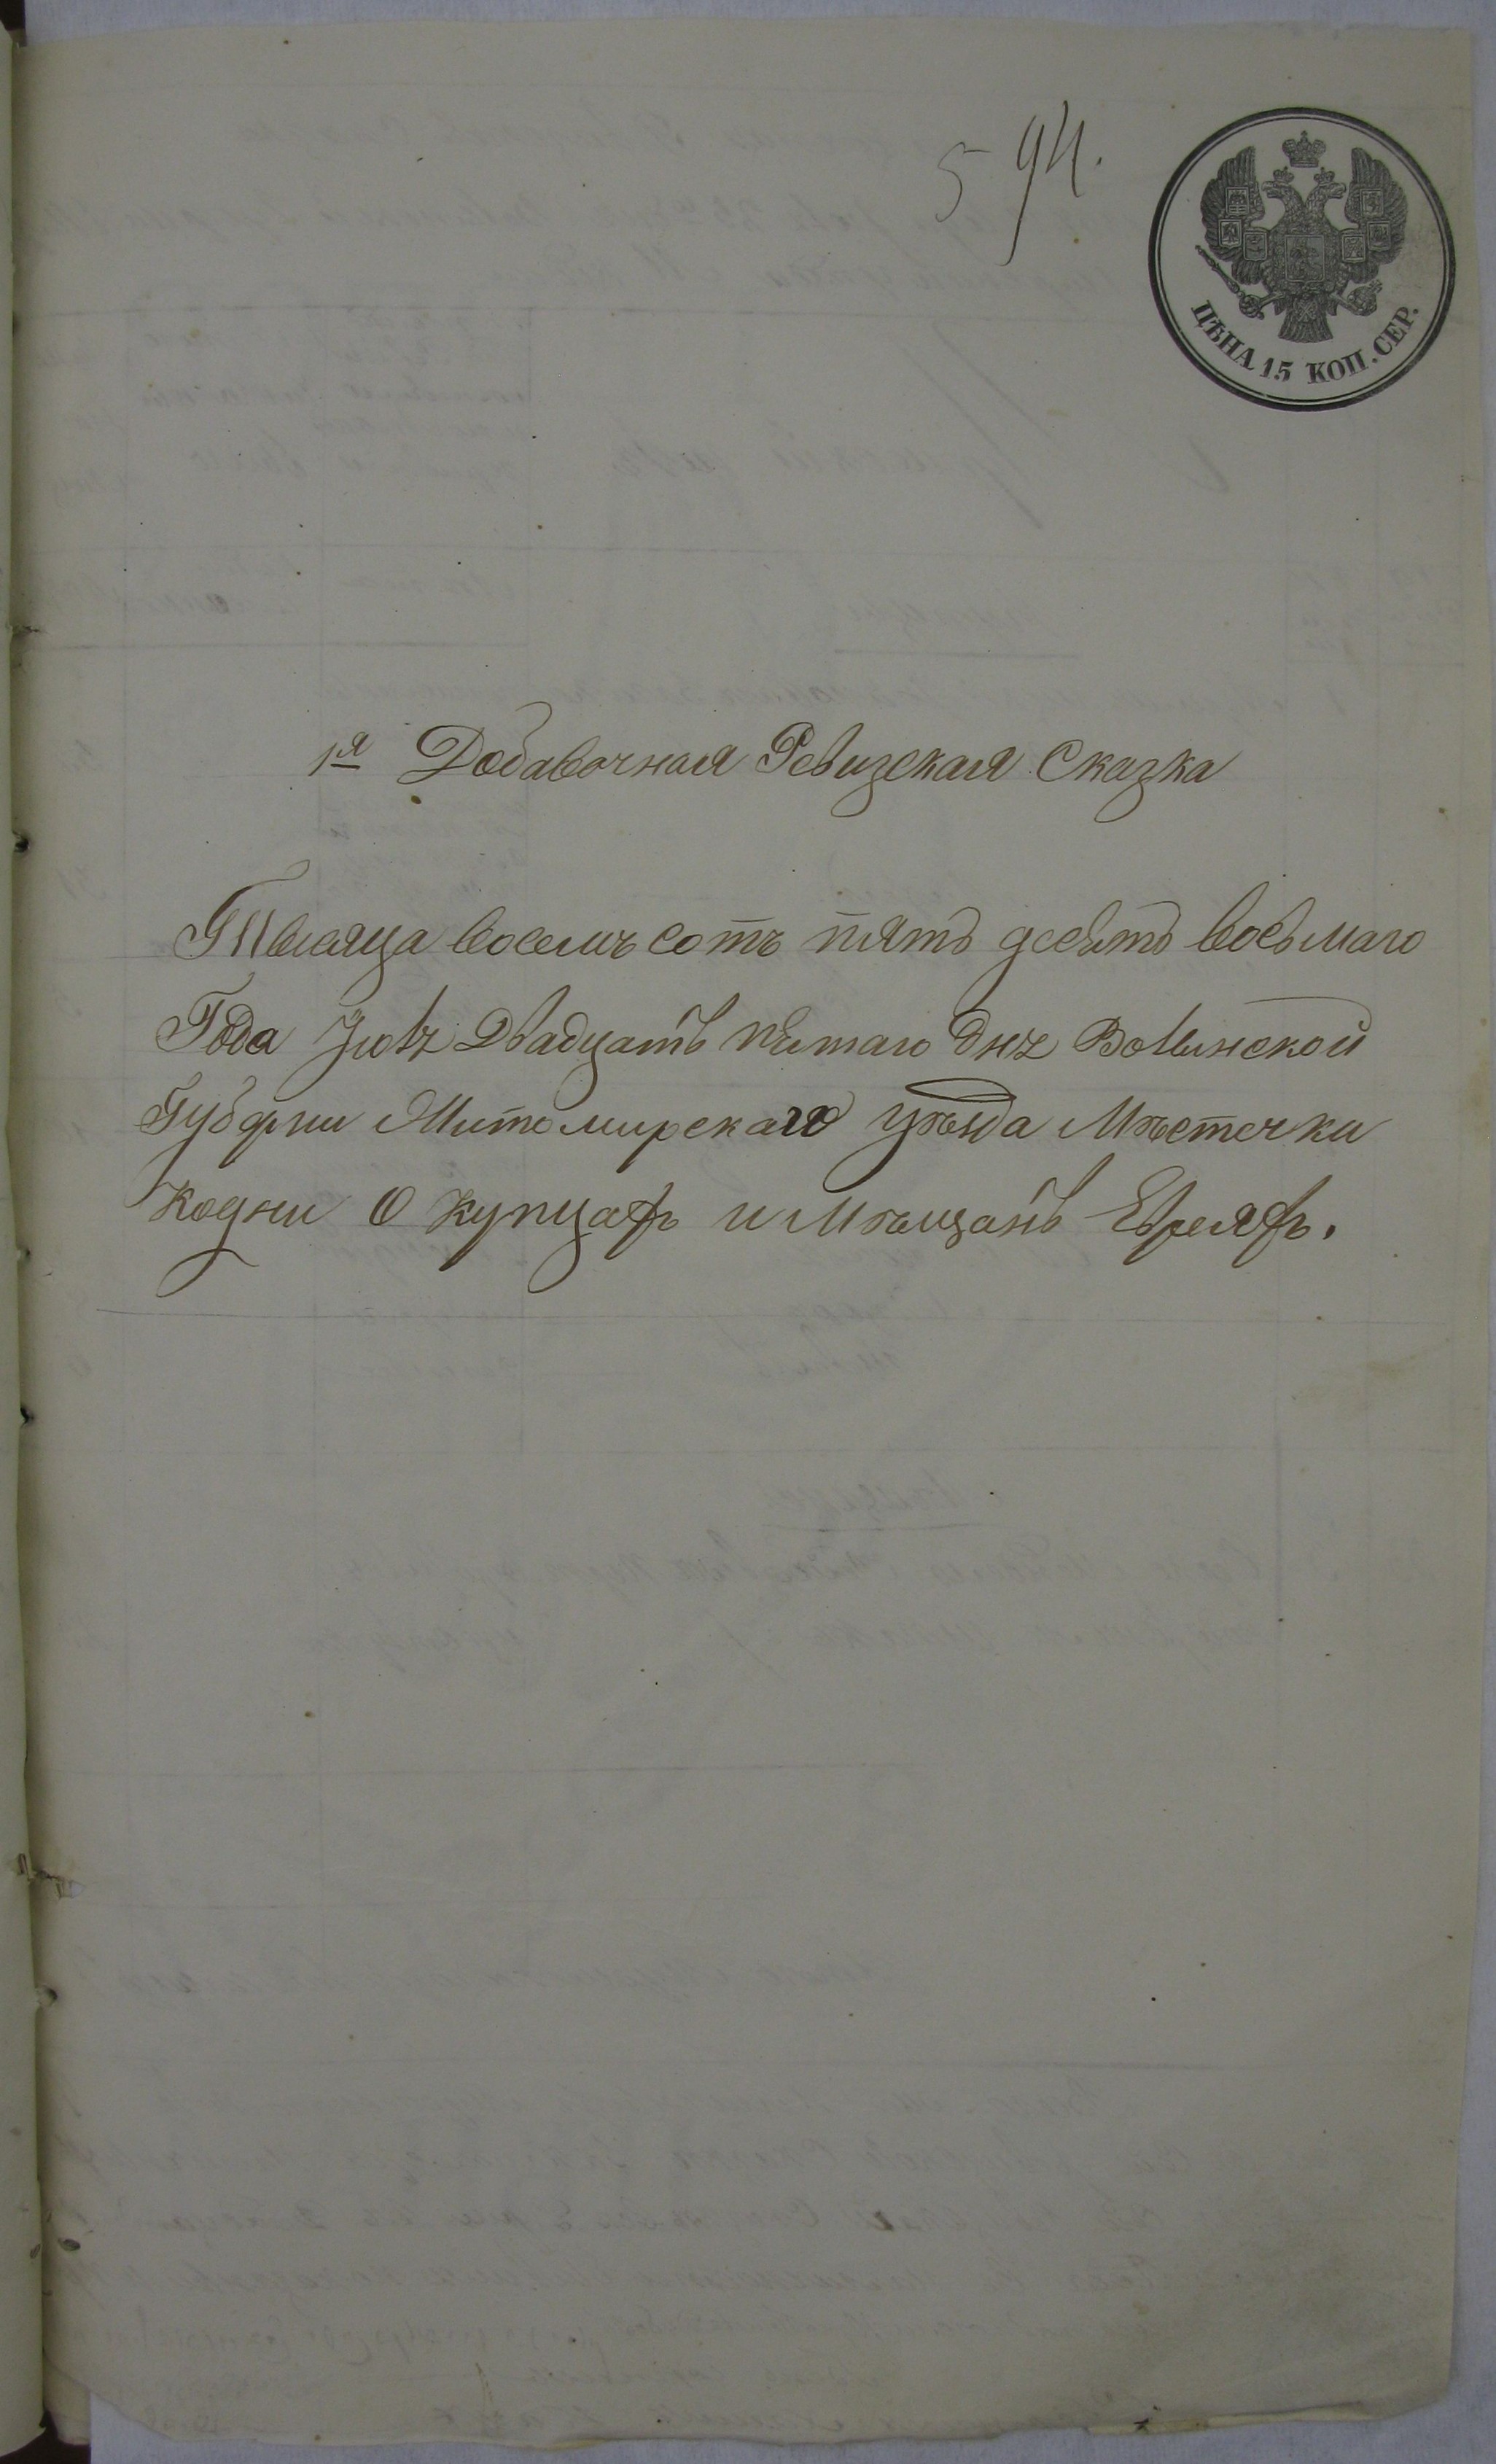 594.
ЦѢНА 15 КОП. СЕР.
1я Добавочная Ревизская Сказка
Тысяща восемъ сотъ пять десять восьмаго
Года Июля Двадцать пятаго дня Волынской
Губернии Житомирскаго уѣзда Мѣстечки
Кодни О Купцахъ и Мѣщанъ Евреяхъ.